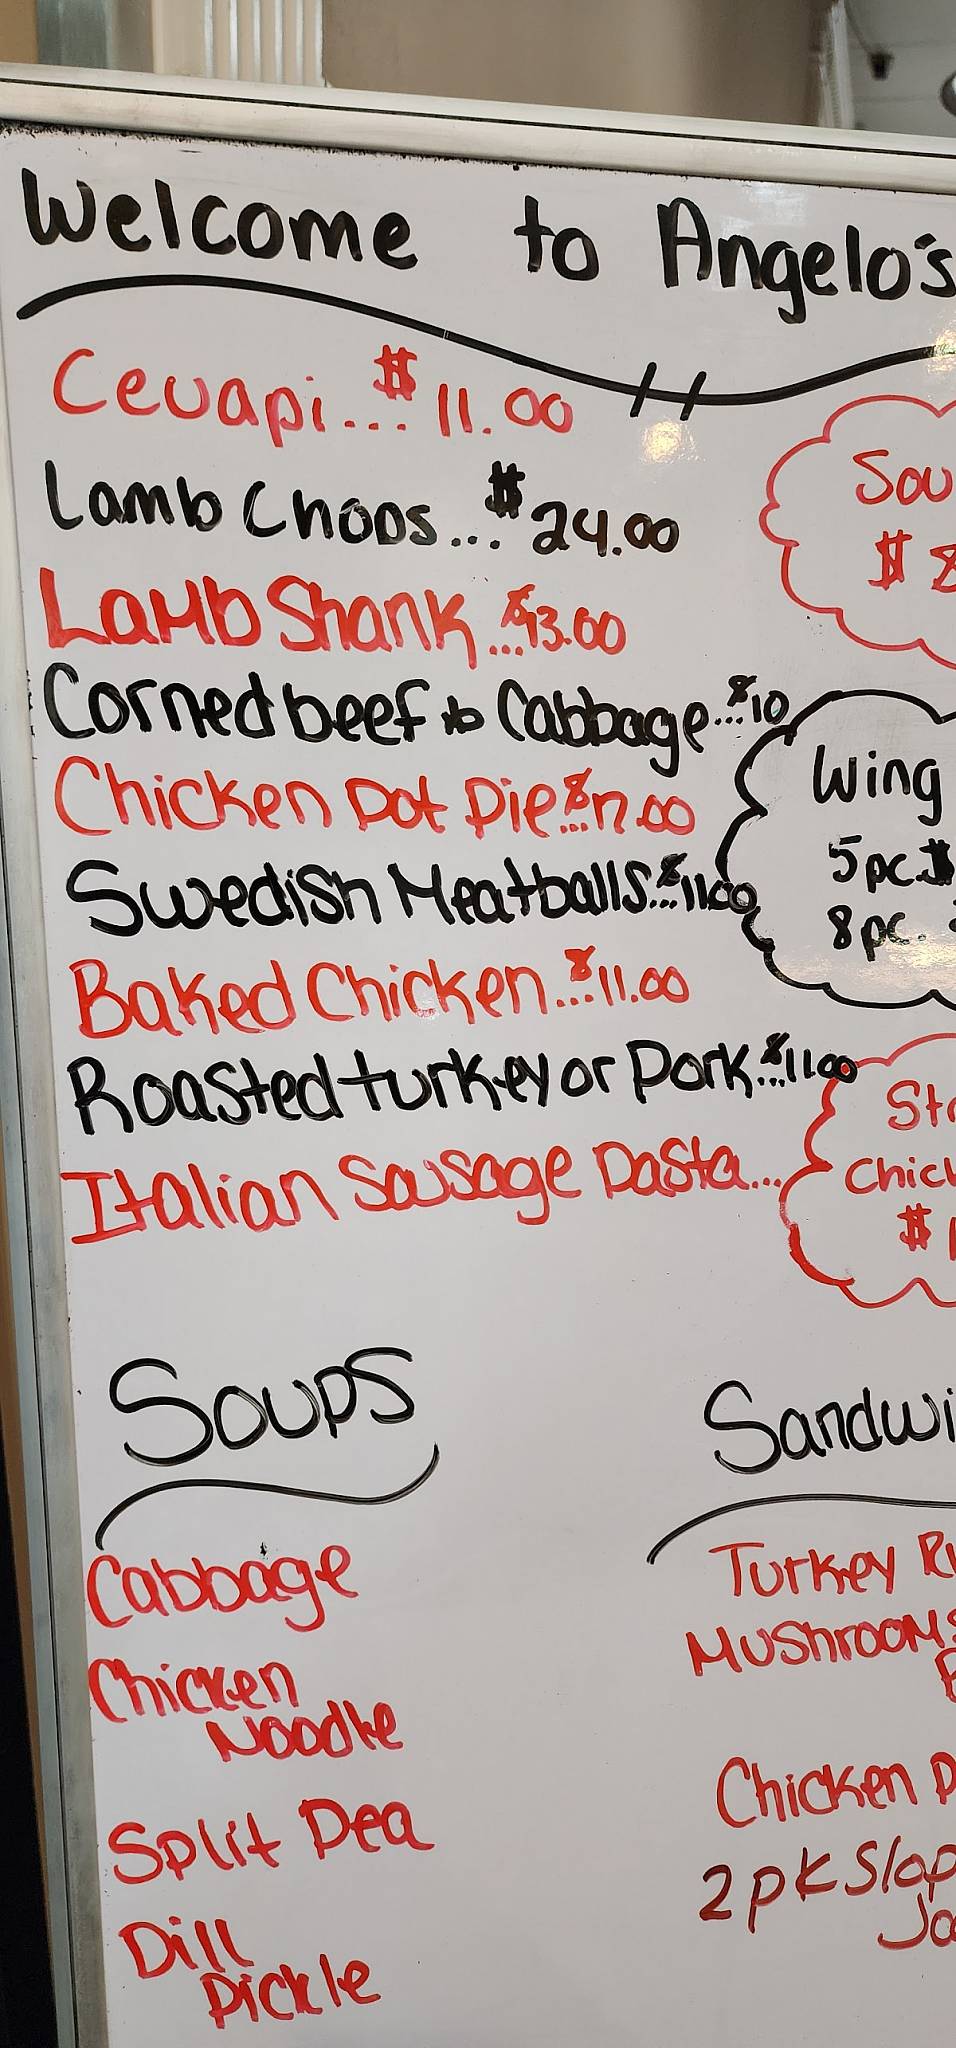 Welcome to Angelo's
Cevapi... $11.00
Lamb Chops... $24.00
Lamb Shank... $13.00
Cornedbeef Cabbage... $10
Chicken Pot Pie... $
Swedish Meatballs... $11.00
Baked Chicken... $11.00
Roasted turkey or Pork... $11.00
Italian Sausage Pasta...
Sou
$ 8
Wing
5pc. $
8pc.
Chick
$ 1
Soups
Cabbage
Chicken
Noodle
Split Pea
Dill
Pickle
Sandwi
Turkey
Mushrooms
Chicken P
2pk Slop
Jo